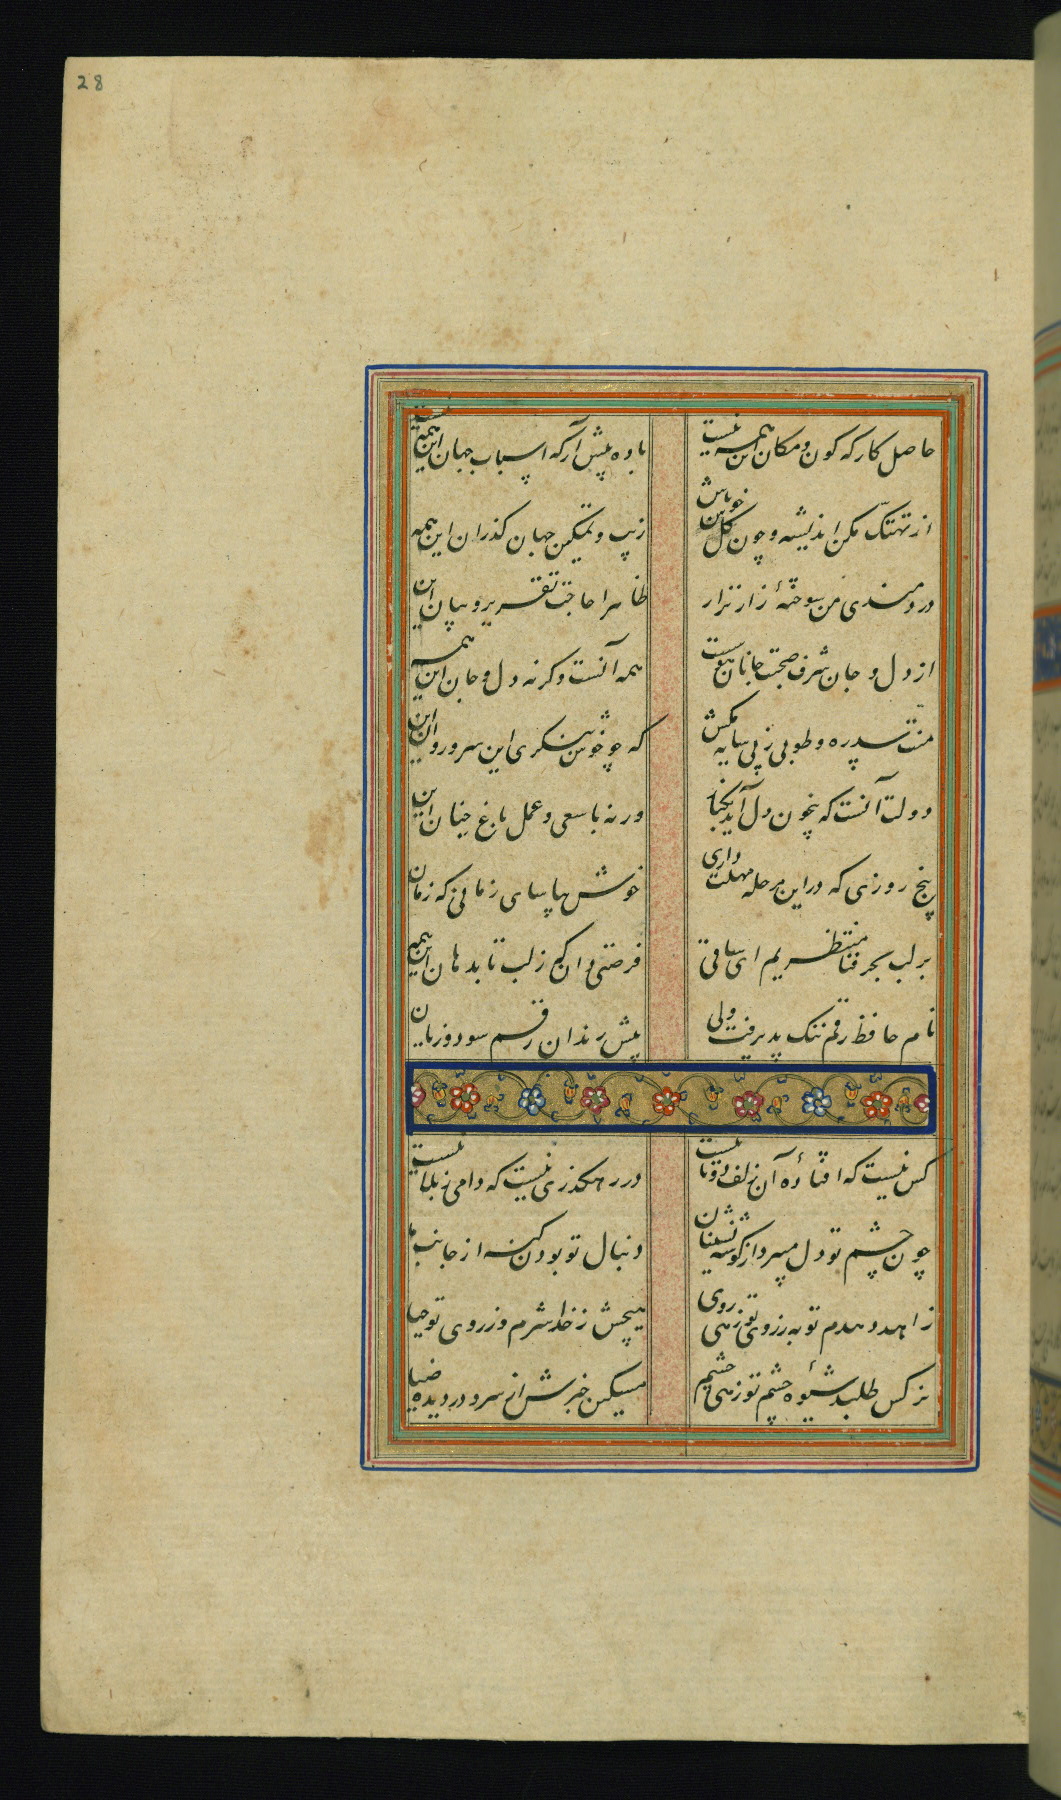 28
حاصل کارکه کون و مکان این همه نیست
باده پیش آر که اسباب جهان این همه نیست
از تهتک مکن اندیشه و چون گل خوش باش
زنکه تمکین جهان گذران این همه
دردمندی من سوخته زار نزار
ظاهرا حاجت تقریر و بیان این
از دل و جان شرف صحبت جانان هوسست
همه آنست وگرنه دل و جان این همه
منت سدره و طوبی ز پی سایه مکش
که چو خوش بنگری این سرو روان این
دولت آنست که بیخون دل آید بکنار
ورنه با سعی و عمل باغ جنان این
پنج روزی که در این مرحله مهلت داری
خوش بیاسای زمانی که زمان
بر لب بحر فنا منتظریم ای ساقی
فرصتی دان که ز لب تا بدهان این همه
نام حافظ رقم ننک پذیرفت ولی
پیش رندان رقم سود و زیان
کس نیست که افتاده آن زلف دوتا نیست
در رهگذری نیست که دامی ز بلا نیست
چون چشم تو دل میبرد از گوشه نشینان
دنبال تو بودن گنه از جانب ما
زاهد دهدم توبه ز روی تو زهی روی
هیچش ز خدا شرم و ز روی تو حیا
نرگس طلبد شیوه چشم تو زهی چشم
مسکین خبرش از سر و در دیده ضیا